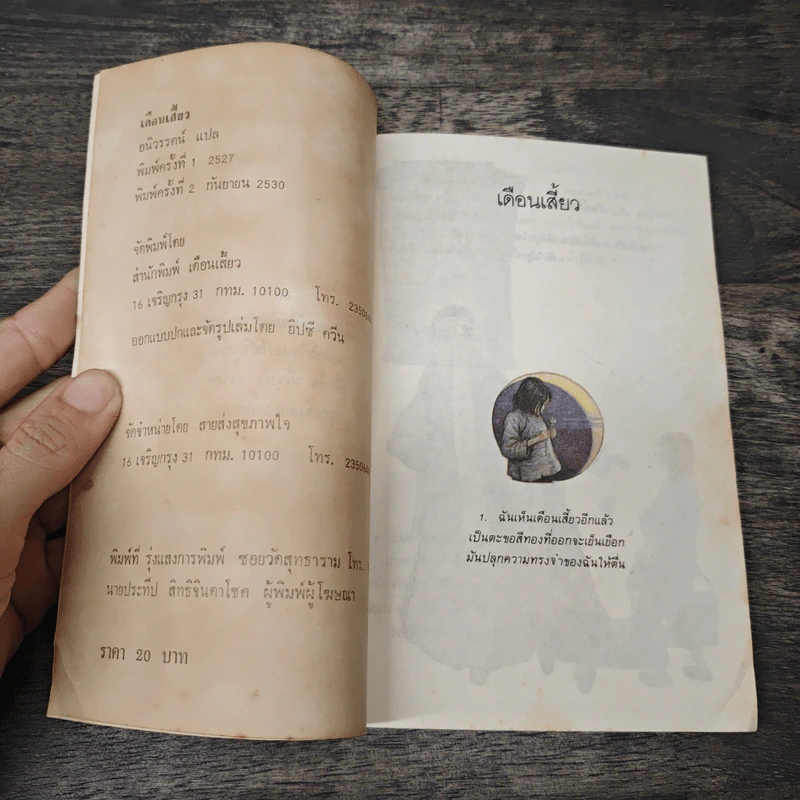 เดือนเสี้ยว
อนิวรรตน์ แปล
พิมพ์ครั้งที่ 1 2527
พิมพ์ครั้งที่ 2 กันยายน 2530
จัดพิมพ์โดย
สำนักพิมพ์ เดือนเสี้ยว
16 เจริญกรุง 31 กทม. 10100 โทร.
ออกแบบปกและจัดรูปเล่มโดย ยิปซี ควีน
จัดจำหน่ายโดย สายส่งสุขภาพใจ
16 เจริญกรุง 31 กทม. 10100 โทร.
พิมพ์ที่ รุ่งแสงการพิมพ์ ซอยวัดสุทธาราม โทร.
นายประทีป สิทธิจินดาโชค ผู้พิมพ์ผู้โฆษณา
ราคา 20 บาท
เดือนเสี้ยว
1. ฉันเห็นเดือนเสี้ยวอีกแล้ว
เป็นตะขอสีทองที่ออกจะเย็นเยือก
มันปลุกความทรงจำของฉันให้ตื่น